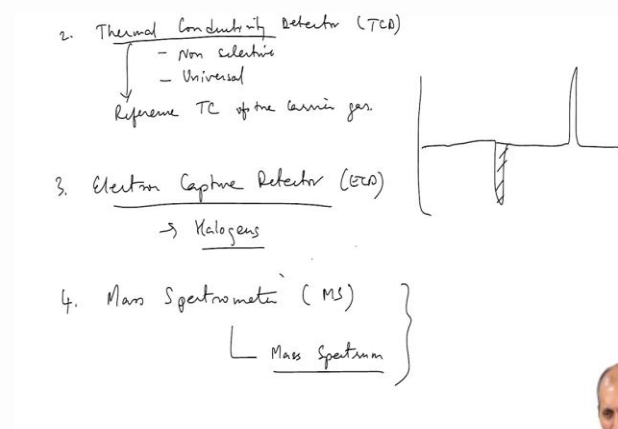 2. Thermal Conductivity Detector (TCD)
- Non selective
- Universal
Reference TC of the carrier gas.
3. Electron Capture Detector (ECD)
→ Halogens
4. Mass Spectrometer (MS)
Mass Spectrum